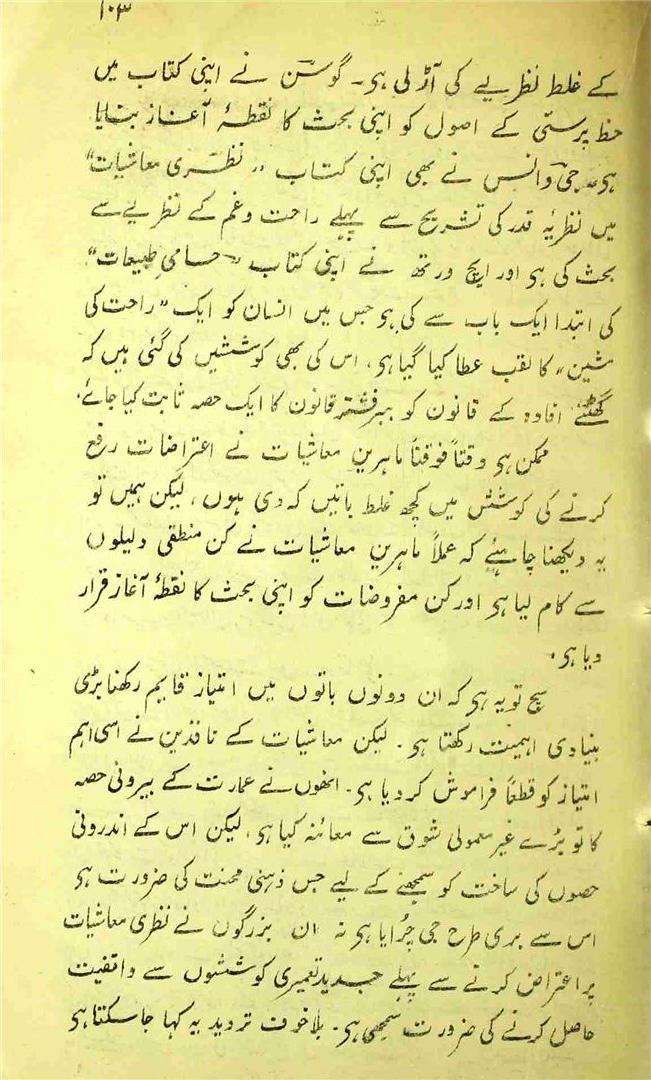 ۱۰۳
کے غلط نظریے کی آڑ لی ہی۔ گوسن نے اپنی کتاب میں
حظ پرستی کے اصول کو اپنی بحث کا نقطۂ آغاز بنایا
ہی۔ جی وانس نے بھی اپنی کتاب „ نظری معاشیات“
میں نظریۂ قدر کی تشریح سے پہلے راحت وغم کے نظریے سے
بحث کی ہی اور ایچ ورتھ نے اپنی کتاب „ حسامی طبیعات“
کی ابتدا ایک باب سے کی ہی جس میں انسان کو ایک „ راحت کی
مشین“ کا لقب عطا کیا گیا ہی، اس کی بھی کوششیں کی گئی ہیں کہ
گھٹتے افادہ کے قانون کو ببر فشنر قانون کا ایک حصہ ثابت کیا جائے۔
ممکن ہی وقتاً فوقتاً ماہرینِ معاشیات نے اعتراضات رفع
کرنے کی کوشش میں کچھ غلط باتیں کہ دی ہوں، لیکن ہمیں تو
یہ دیکھنا چاہیئے کہ عملاً ماہرینِ معاشیات نے کن منطقی دلیلوں
سے کام لیا ہی اور کن مفروضات کو اپنی بحث کا نقطۂ آغاز قرار
دیا ہی۔
سچ تو یہ ہی کہ ان دونوں باتوں میں امتیاز قایم رکھنا بڑی
بنیادی اہمیت رکھتا ہی۔ لیکن معاشیات کے ناقدین نے اسی اہم
امتیاز کو قطعاً فراموش کر دیا ہی۔ انھوں نے عمارت کے بیرونی حصہ
کا تو بڑے غیر معمولی شوق سے معائنہ کیا ہی، لیکن اس کے اندرونی
حصوں کی ساخت کو سمجھنے کے لیے جس ذہنی محنت کی ضرورت ہی
اس سے بری طرح جی چُرایا ہی نہ ان بزرگوں نے نظری معاشیات
پر اعتراض کرنے سے پہلے جدید تعمیری کوششوں سے واقفیت
حاصل کرنے کی ضرورت سمجھی ہی۔ بلا خوف تردید یہ کہا جا سکتا ہی